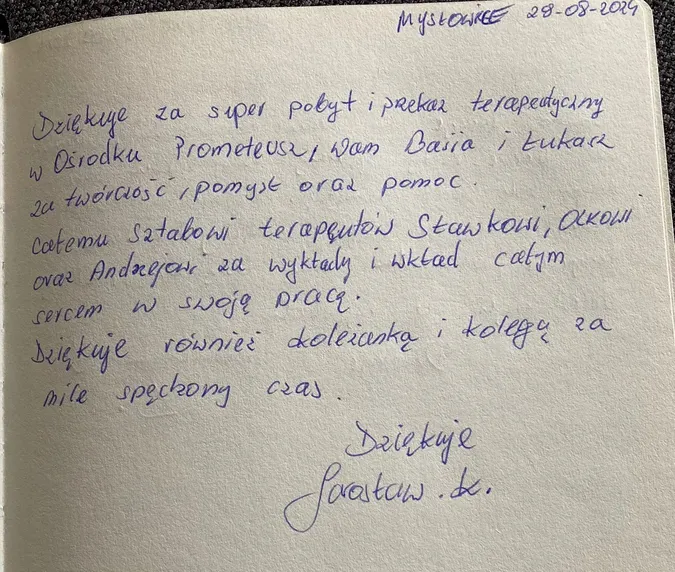 Mysłowice 29-08-2024
Dziękuje za super pobyt i przekaz terapeutyczny
w Ośrodku Prometeusz, wam Basia i Łukasz
za twórczość, pomysł oraz pomoc.
całemu sztabowi terapęutów Sławkowi, Olkowi
oraz Andrzejowi za wykłady i wkład całym
sercem w swoją pracą.
Dziękuje również koleżanką i kolegą za
mile spęczony czas.
Dziękuje
Jarosław. K.